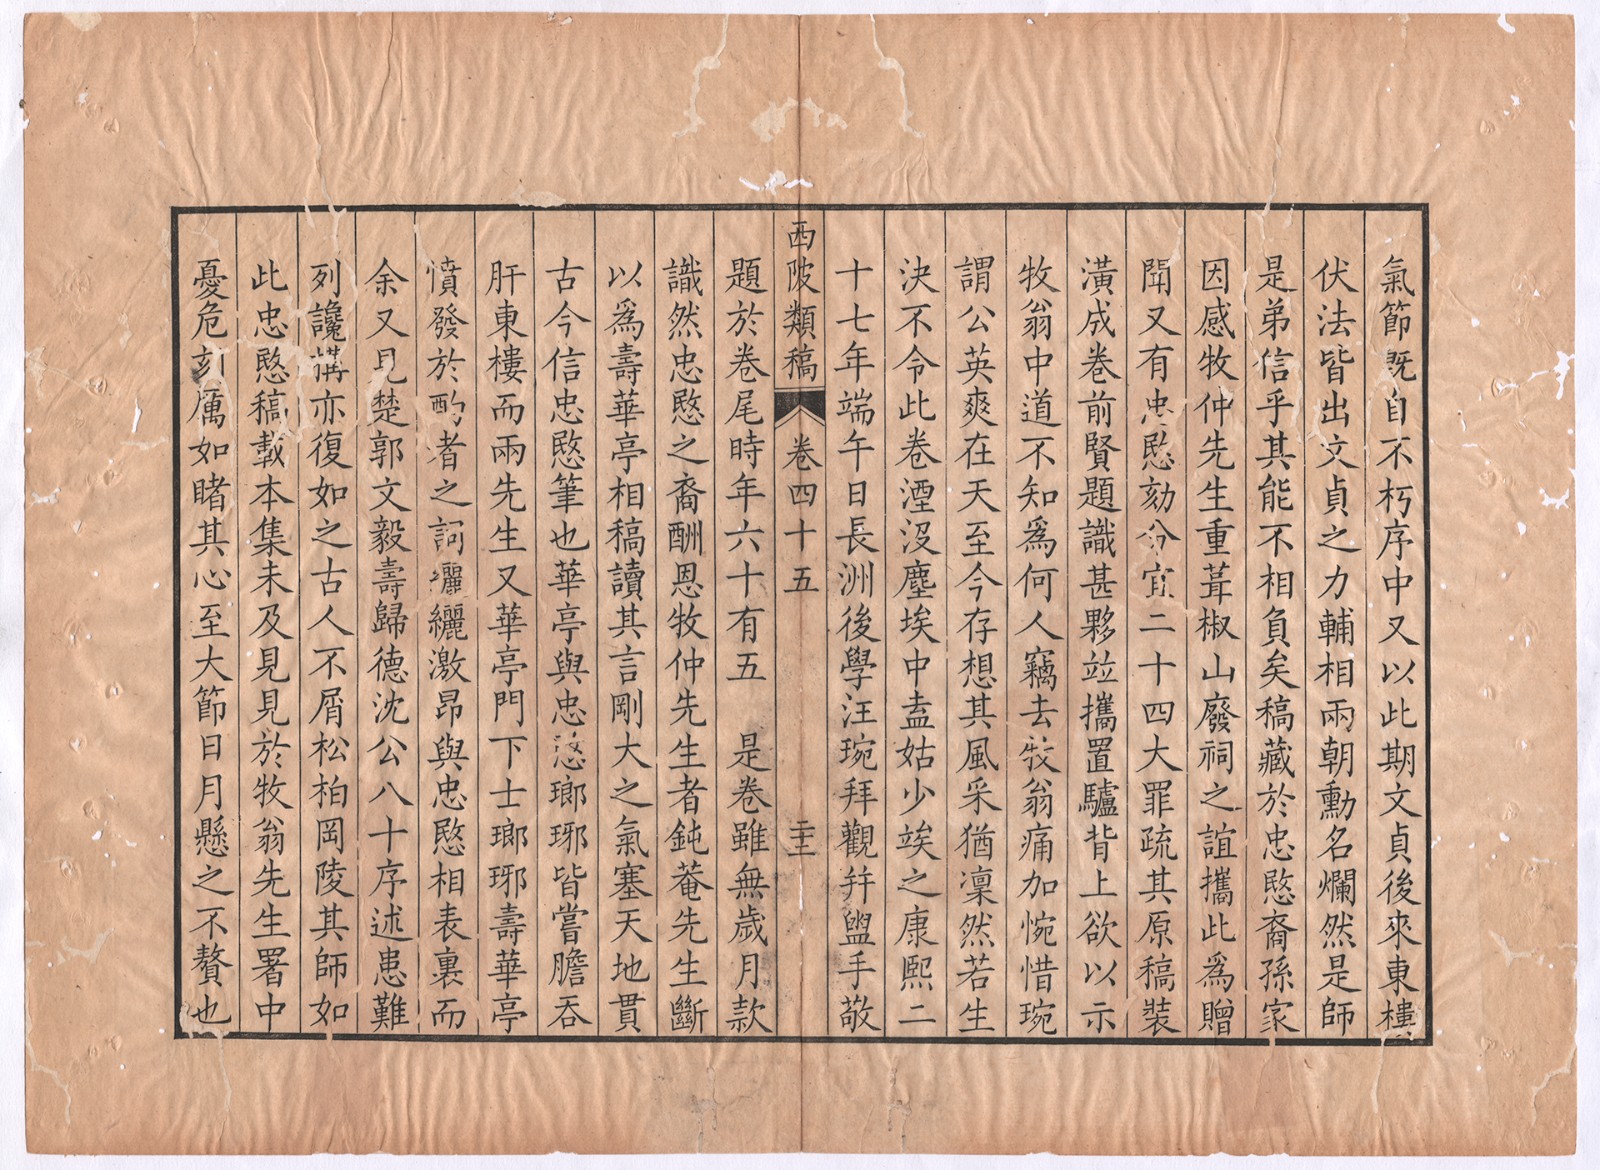 氣節既自不朽序中又以此期文貞後來東樓
伏法皆出文貞之力輔相兩朝勳名爛然是師
是弟信乎其能不相負矣稿藏於忠愍裔孫家
因感牧仲先生重葺椒山廢祠之誼攜此為贈
聞又有忠愍劾分宜二十四大罪疏其原稿裝
潢成卷前賢題識甚夥竝攜置驢背上欲以示
牧翁中道不知為何人竊去牧翁痛加惋惜琬
謂公英爽在天至今存想其風采猶凜然若生
決不令此卷湮沒塵埃中盍姑少竢之康熙二
十七年端午日長洲後學汪琬拜觀幷盥手敬
西陂類稿 卷四十五 二十三
題於卷尾時年六十有五 是卷雖無歲月款
識然忠愍之裔酬恩牧仲先生者鈍菴先生斷
以為壽華亭相稿讀其言剛大之氣塞天地貫
古今信忠愍筆也華亭與忠愍瑯琊皆嘗膽吞
肝東樓而兩先生又華亭門下士瑯琊壽華亭
憤發於酌者之詞纚纚激昂與忠愍相表裏而
余又見楚郭文毅壽歸德沈公八十序述患難
列讒搆亦復如之古人不屑松柏岡陵其師如
此忠愍稿載本集未及見見於牧翁先生署中
憂危刻厲如睹其心至大節日月懸之不贅也